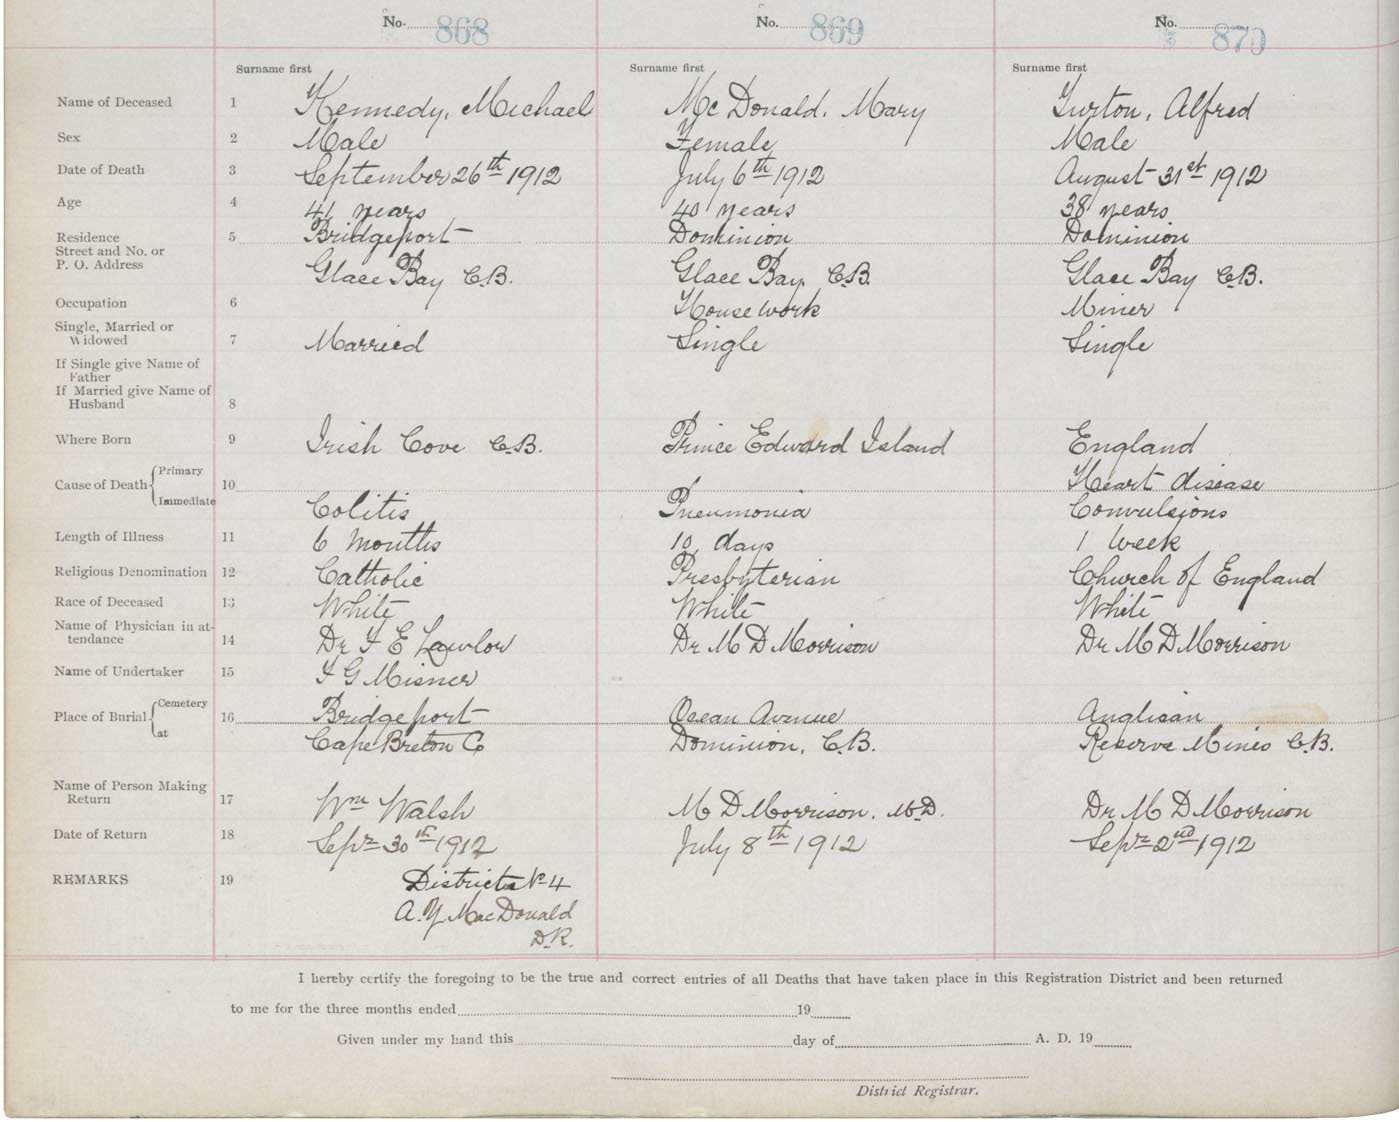 No. 868 No. 869 No. 870
Surname first Surname first Surname first
Name of Deceased 1 Kennedy, Michael Mc Donald, Mary Turton, Alfred
Sex 2 Male Female Male
Date of Death 3 September 26th 1912 July 6th 1912 August 31st 1912
Age 4 41 years 40 years 38 years
Residence 5 Bridgeport Dominion Dominion
Street and No. or
P. O. Address Glace Bay C.B. Glace Bay C.B. Glace Bay C.B.
Occupation 6 Housework Miner
Single, Married or
Widowed 7 Married Single Single
If Single give Name of
Father
If Married give Name of
Husband 8
Where Born 9 Irish Cove C.B. Prince Edward Island England
Cause of Death Primary 10 Heart disease
Immediate Colitis Pneumonia Convulsions
Length of Illness 11 6 months 10 days 1 week
Religious Denomination 12 Catholic Presbyterian Church of England
Race of Deceased 13 White White White
Name of Physician in at-
tendance 14 Dr E Lawlor Dr M D Morrison Dr M D Morrison
Name of Undertaker 15 G Misner
Place of Burial Cemetery 16 Bridgeport Ocean Avenue Anglican
at Cape Breton Co Dominion, C.B. Reserve Mines C.B.
Name of Person Making
Return 17 Wm Walsh M D Morrison. M.D. Dr M D Morrison
Date of Return 18 Sepr 30th 1912 July 8th 1912 Sepr 2nd 1912
REMARKS 19 District No 4
A. Y. MacDonald
D.R.
I hereby certify the foregoing to be the true and correct entries of all Deaths that have taken place in this Registration District and been returned
to me for the three months ended 19
Given under my hand this day of A. D. 19
District Registrar.